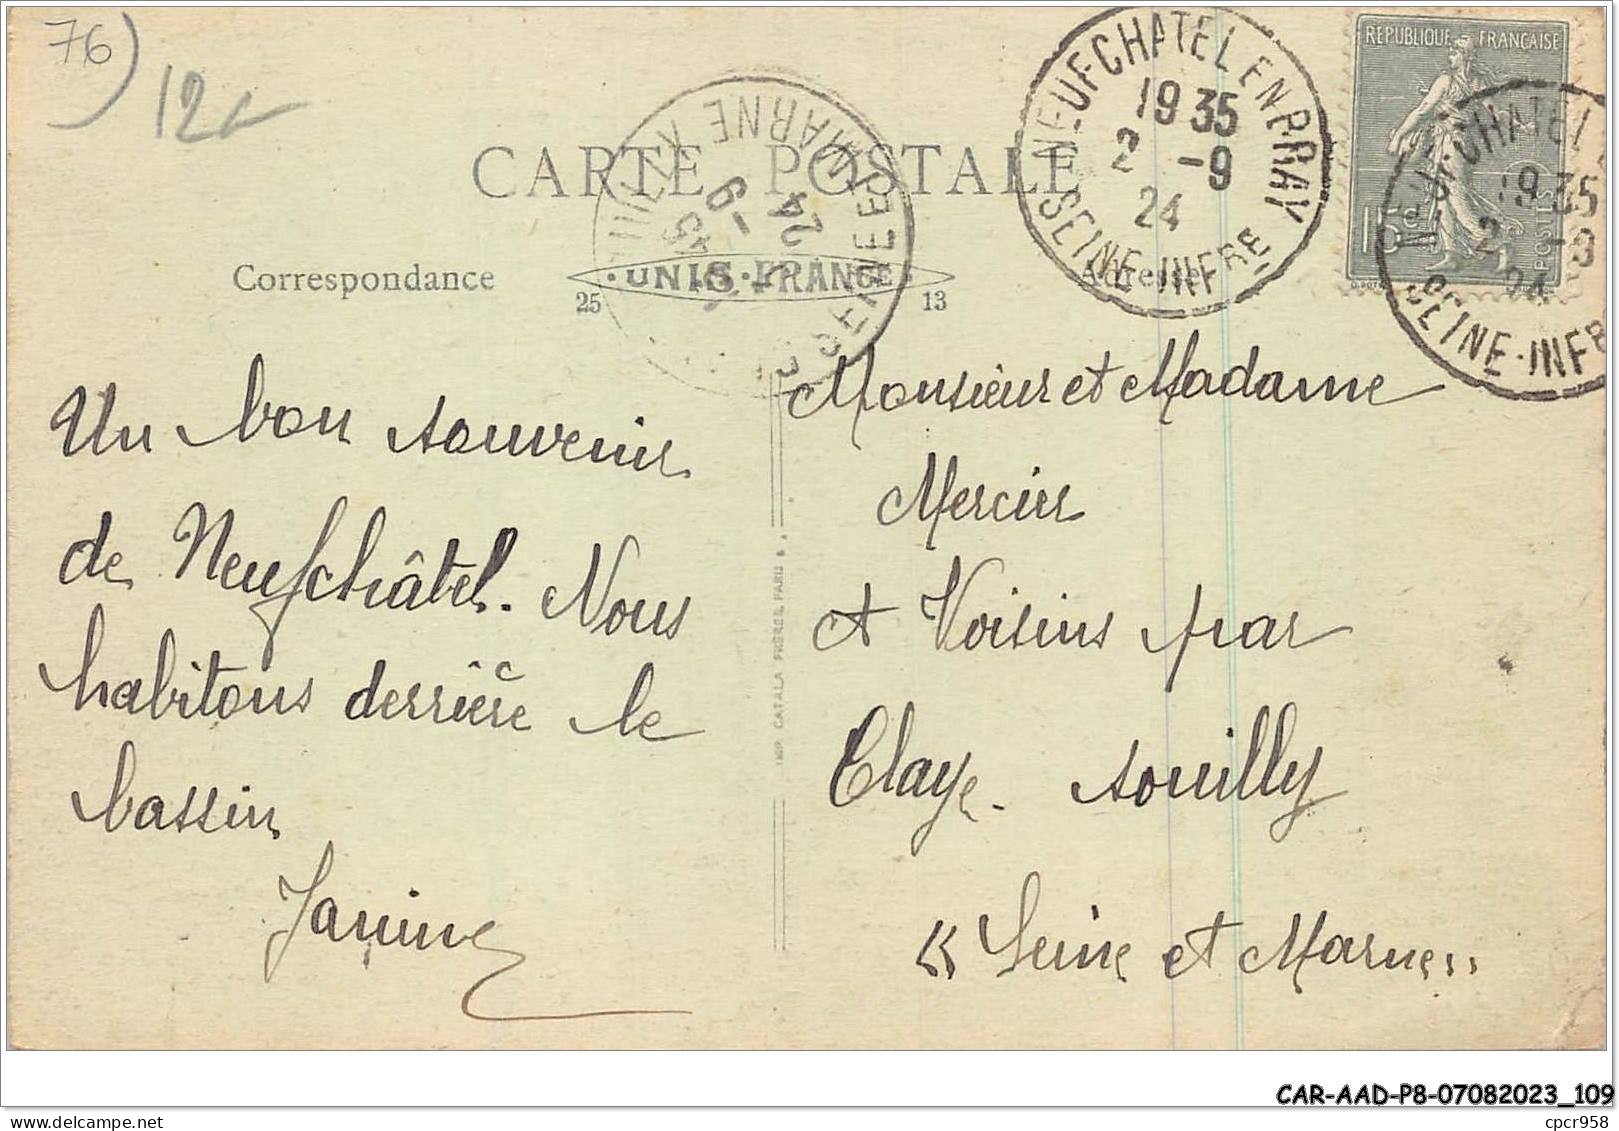 76)
12
CARTE POSTALE
NEUFCHATEL EN BRAY
19 35
2 -9
24
SEINE-INFRE
REPUBLIQUE FRANÇAISE
15c
POSTES
NEUFCHATEL
19 35
2 -9
24
SEINE-INFRE
SEINE ET MARNE
-9
24
Correspondance
UNIS-FRANCE
25
13
Adresse
Un bon souvenir
de Neufchâtel. Nous
habitons derrière le
bassin
Janine
IMP. CATALA FRERES, PARIS
Monsieur et Madame
Mercier
A Voisins par
Claye-souilly
« Seine et Marne »
CAR-AAD-P8-07082023_109
cpcr958